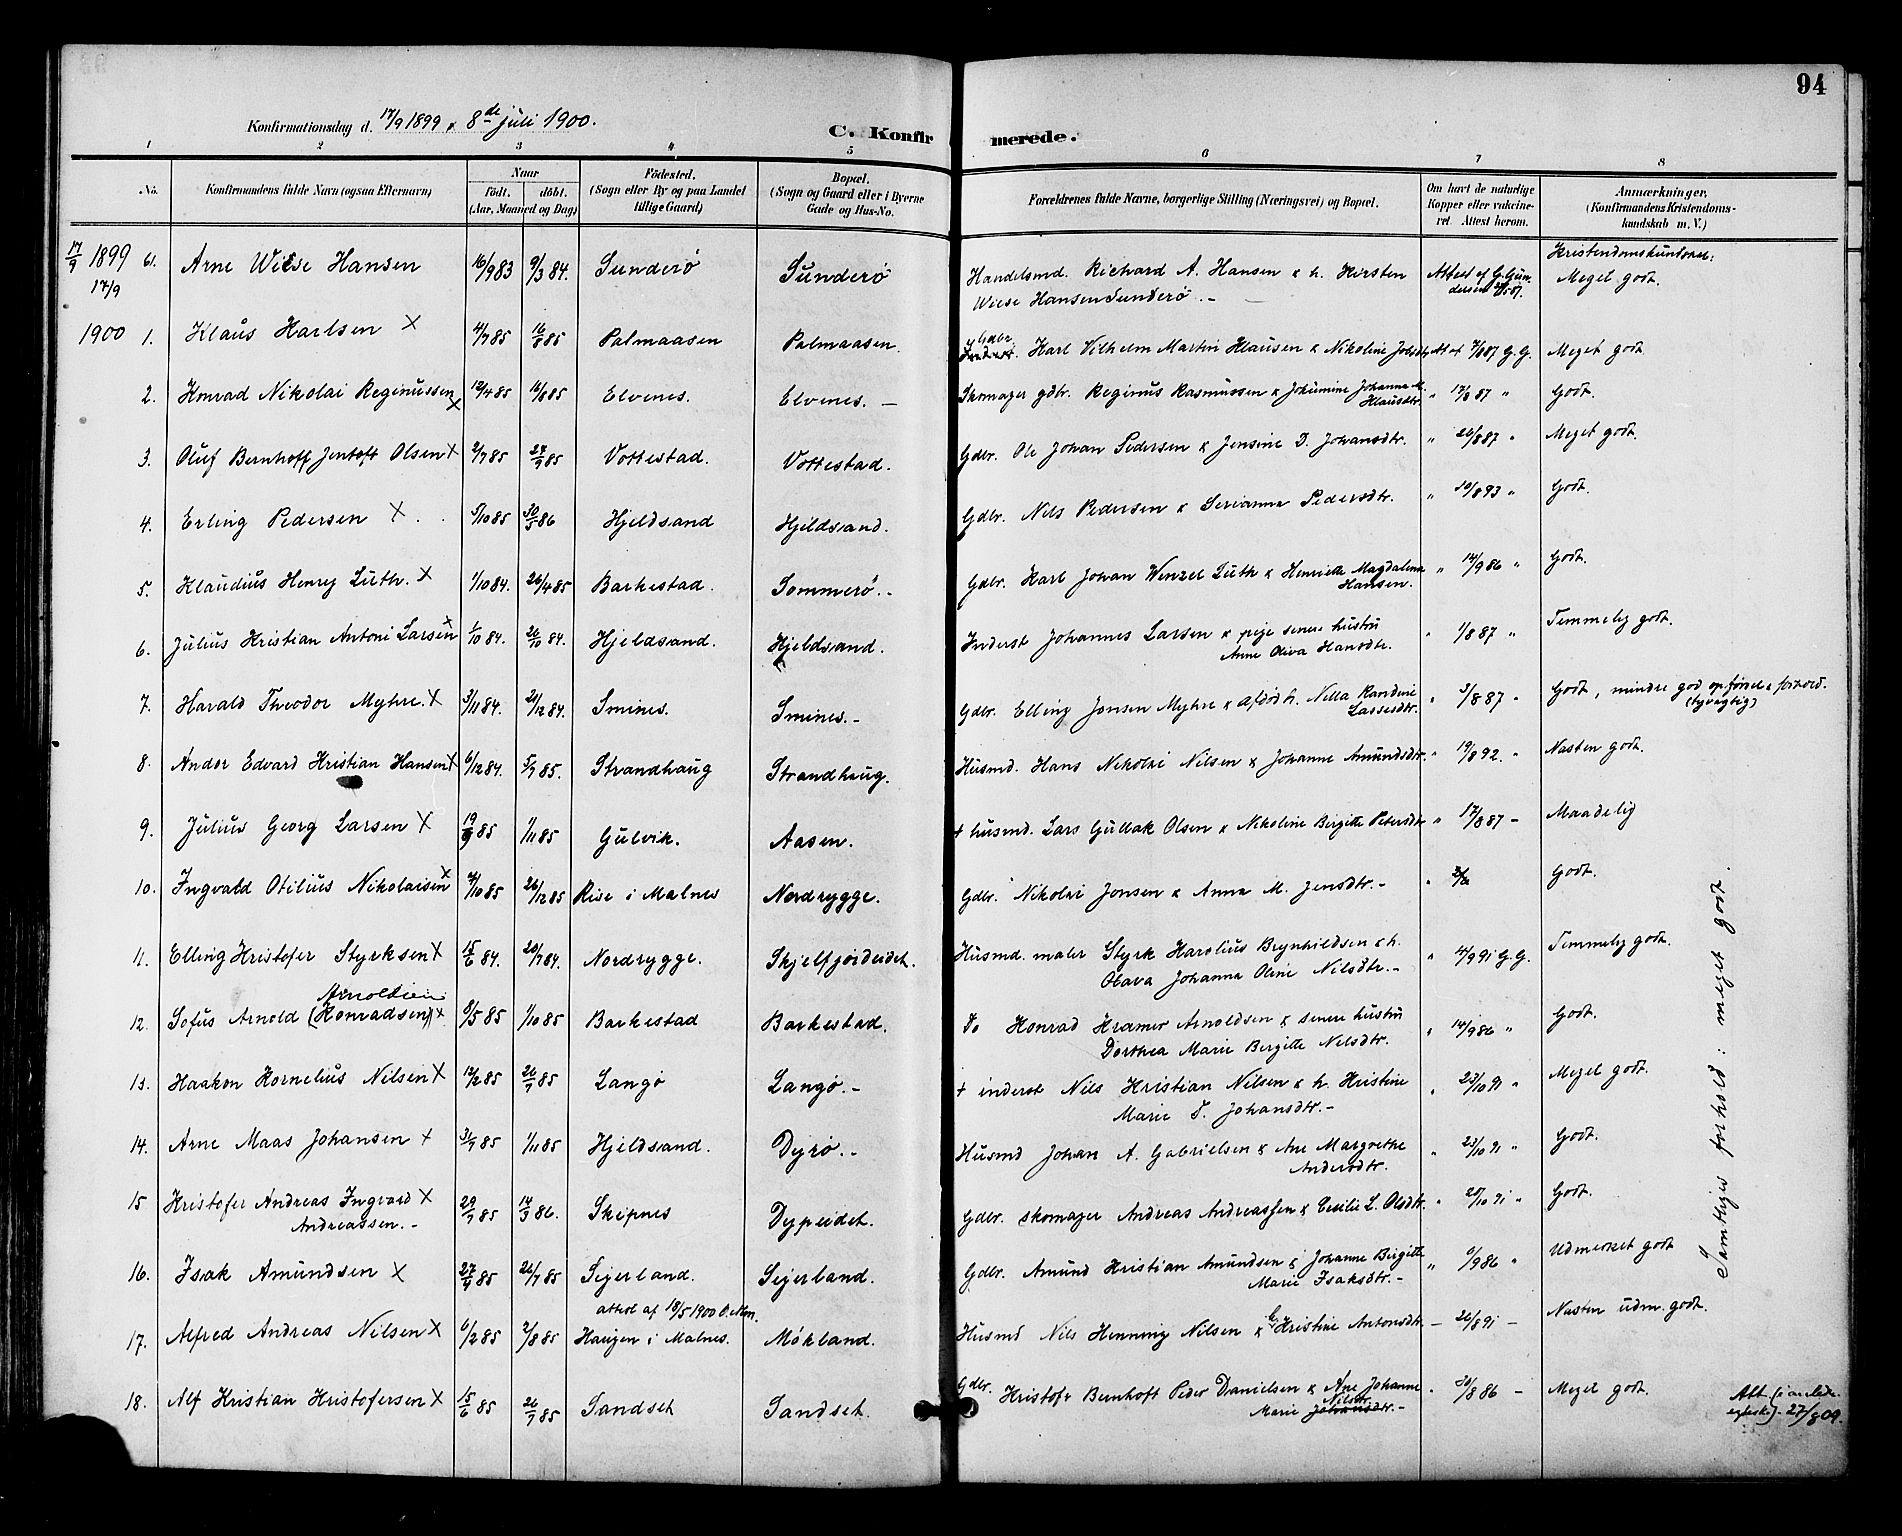 94
Konfirmationsdag d. 17/9 1899 & 8de juli 1900.
C. Konfirmerede.
1 2 3 4 5 6 7 8
No. Konfirmandens fulde Navn (ogsaa Efternavn) Naar født. døbt. (Aar, Maaned og Dag) Fødested. (Sogn eller By og paa Landet tillige Gaard) Bopæl. (Sogn og Gaard eller i Byerne Gade og Hus-No. Forældrenes fulde Navne, borgerlige Stilling (Næringsvei) og Bopæl. Om havt de naturlige Kopper eller vakcineret. Attest herom. Anmærkninger, (Konfirmandens Kristendomskundskab m. V.)
Kristendomskundskab:
17/9 1899 61. Arne Wiese Hansen 16/9 83 9/3 84. Sunderö Sunderö Handelsmd. Richard A. Hansen & h. Kirsten Attest af G. Gun- Meget godt.
17/9 Wiese Hansen Sunderö. - dersen
1900 1. Klaus Karlsen X 4/7 85 16/8 85 Palmaasen Palmaasen. Gdbr. Karl Vilhelm Martin Klausen & Nikoline Meget godt
2. Konrad Nikolai Reginussen X 12/4 85 16/8 85 Elvenes. Elvenes. - Skomager gdbr. Reginus Rasmussen & Johanna M. Klausdtr. " 17/8 87 " Godt.
3. Oluf Bernhoff Jentoft Olsen X 2/7 85 27/9 85 Vottestad. Vottestad. Gdbr. Ole Johan Pedersen & Jensine D. Johansdtr. " 26/8 87 " Meget godt.
4. Erling Pedersen X 5/10 85 30/5 86 Hjeldsand Hjeldsand. Gdbr. Nils Pedersen & Serianna Pedersdtr. " 19/8 93 " Godt.
5. Klaudius Henry Luth. X 1/10 84. 26/4 85 Barkestad. Sommerö. - Gdbr. Karl Johan Wenzel Luth & Henriette Magdalena Hansen. " 14/9 86 " Godt.
6. Julius Kristian Antoni Larsen X 1/10 84. 26/10 84. Hjeldsand. Hjeldsand. Inderst Johannes Larsen & pige senere hustru " 1/8 87 " Temmelig godt.
Anne Oliva Hansdtr.
7. Harald Theodor Myhre. X 3/11 84. 21/12 84. Smines. Smines. - Gdbr. Elling Jonsen Myhre & afdöd h. Nilla Randine Larsesdtr. " 3/8 87 " Godt, mindre god opförsel & forhold.
(tyvagtig)
8. Andor Edvard Kristian Hansen X 6/12 84. 5/7 85. Strandhaug Strandhaug. Husmd. Hans Nikolai Nilsen & Johanne Amundsdtr. " 19/8 92. " Næsten godt.
9. Julius Georg Larsen X 19/9 85 1/11 85 Gulvik. Aasen. + husmd. Lars Gullak Olsen & Nikoline Birgitte Petersdtr " 17/8 87 - Maadelig
10. Ingvald Otilius Nikolaisen X 4/10 85 26/12 85 Rise i Malnes Nordrygge. Gdbr. Nikolai Jonsen & Anna M. Jensdtr. - " Godt.
11. Elling Kristofer Styrksen X 15/6 84. 20/7 84. Nordrygge. Skjelfjordeidet. Husmd. maler Styrk Harolius Brynhildsen & h. " 4/9 91 G.G. Temmelig godt.
Olava Johanna Oline Nilsdtr. -
Arnoldsen
12. Sofus Arnold (Konradsen) X 8/5 85 1/10 85 Barkestad Barkestad. Do Konrad Kramer Arnoldsen & senere hustru " 14/9 86 " Godt.
Dorthea Marie Bergitte Nilsdtr.
13. Haakon Kornelius Nilsen X 12/2 85 26/7 85 Langö Langö. - + inderst Nils Kristian Nilsen & h. Kristine " 23/10 91 " Meget godt.
Marie T. Johansdtr. -
14. Arne Maas Johansen + 3/7 85 1/11 85 Hjeldsand. Dyrö. - Husmd Johan A. Gabrielsen & Ane Margrethe Andersdtr. " 23/10 91 " Godt.
15 Kristofer Andreas Ingvard X 29/7 85 14/3 86. Skipnes Dypeidet. Gdbr. skomager Andreas Andreassen & Cecilie L. Olsdtr. " 25/10 91 " Godt.
Andreassen. -
16. Isak Amundsen X 27/4 85 26/7 85 Sejerland. Sejerland. Gdbr. Amund Kristian Amundsen & Johanne Birgitte " 6/9 86 " Udmerket godt
Marie Isaksdtr. -
attest af 18/5 1900
17. Alfred Andreas Nilsen X 6/2 85 2/8 85 Haugen i Malnes. Mökland. Husmd Nils Henning Nilsen & Kristine Antonsdtr. - 26/8 91 - Næsten udm. godt.
18. Alf Kristian Kristofersen X 15/6 85 26/7 85 Sandset Sandset. Gdbr. Kristofr Bernhoft Peder Danielsen & Ane Johanne " 30/8 86 - Meget godt.
Marie Johansdtr. - Nilsdtr.
Samtliges forhold: meget godt.
Att. 27/8 09.